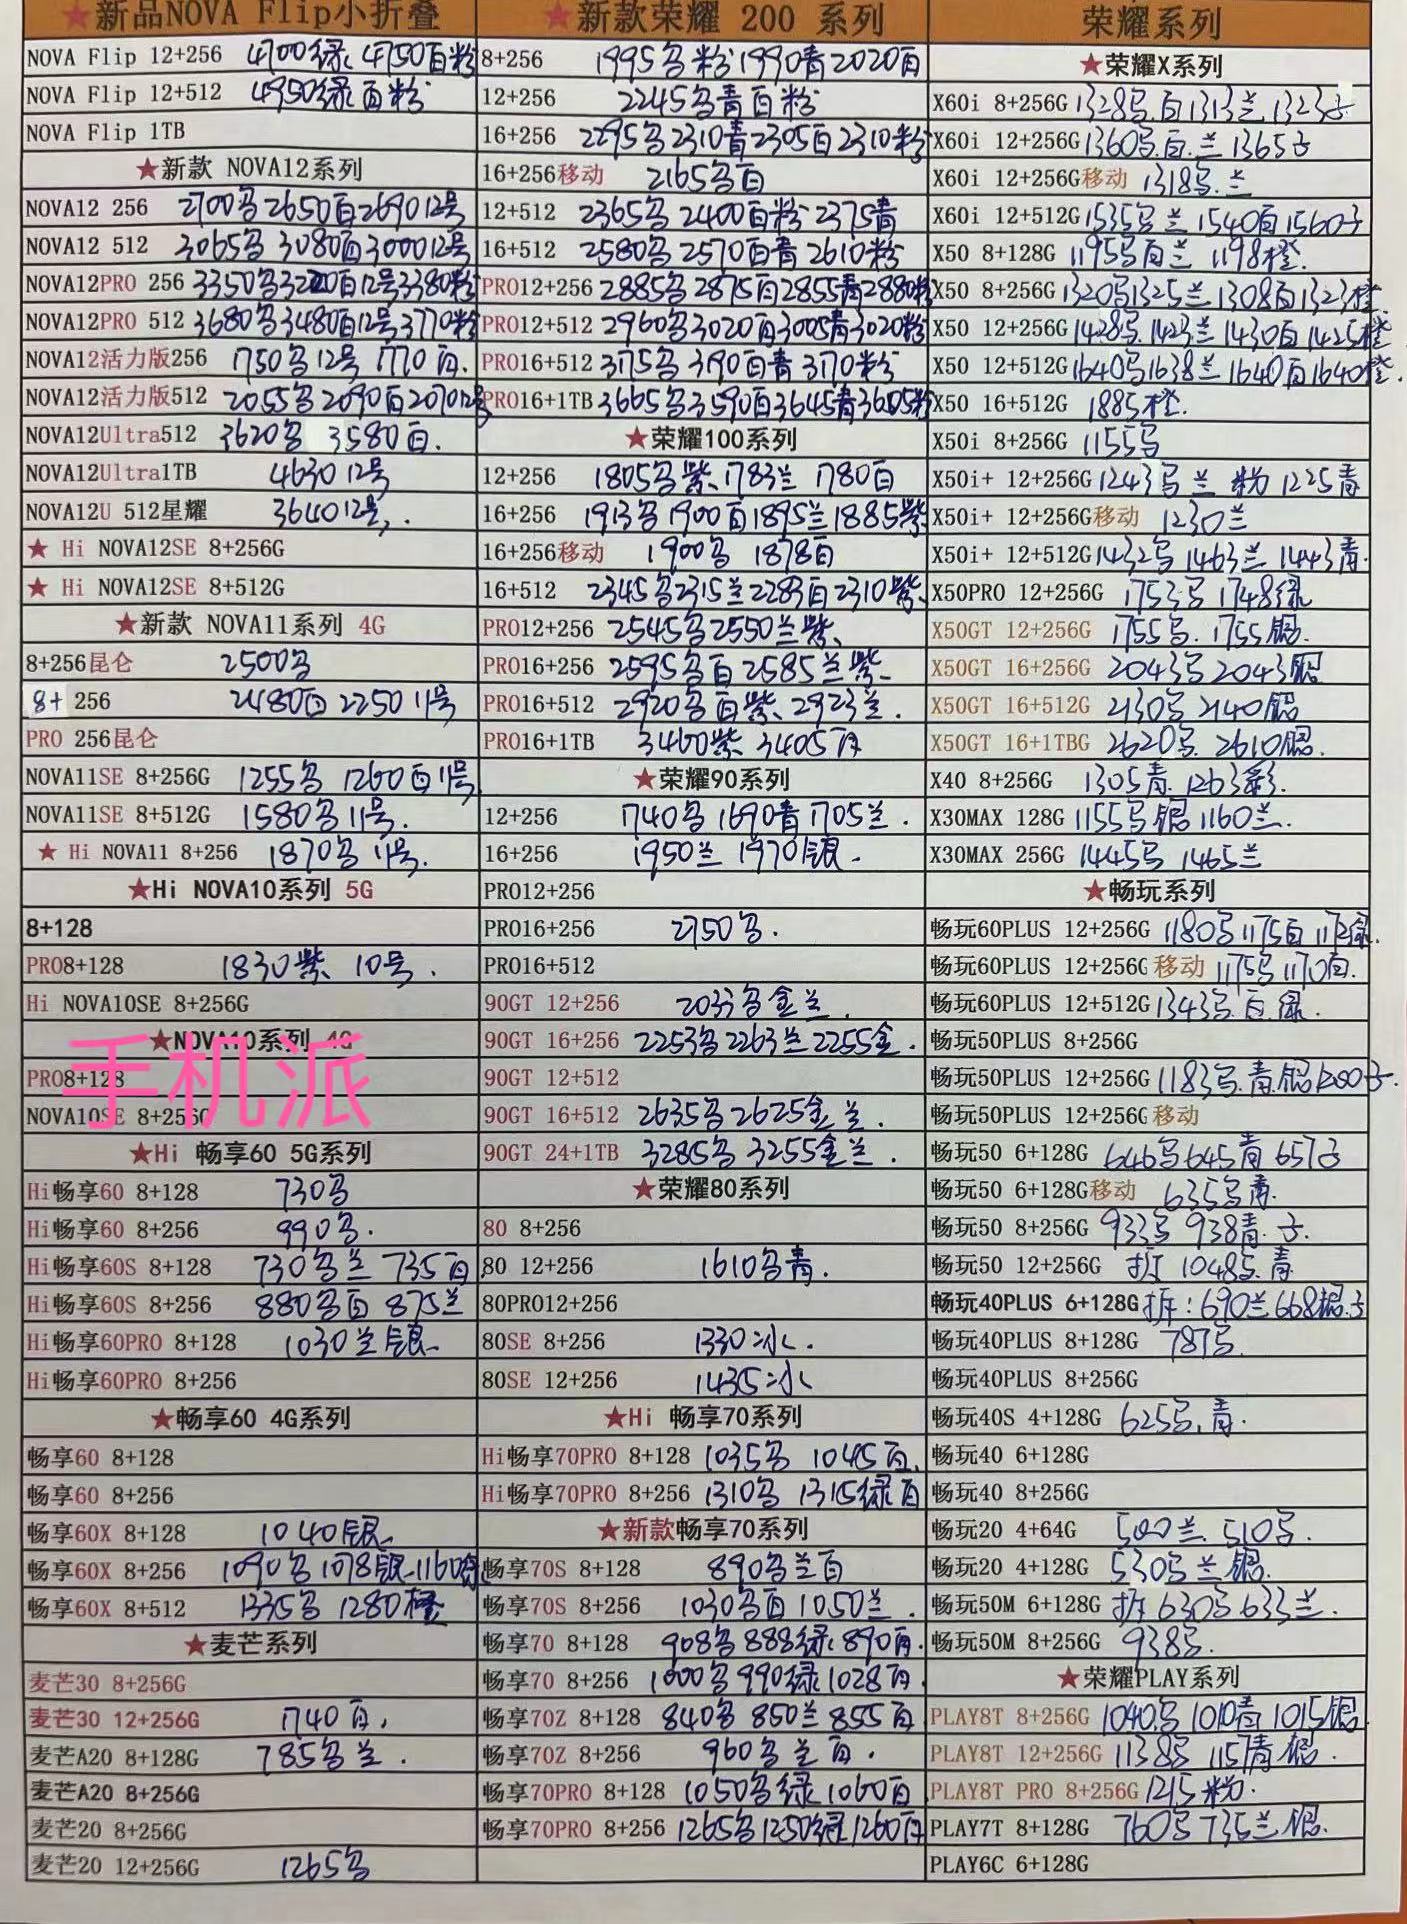 ★新品NOVA Flip小折叠
NOVA Flip 12+256 4700绿 4750白粉
NOVA Flip 12+512 4950绿白粉
NOVA Flip 1TB
★新款 NOVA12系列
NOVA12 256 2700黑2650白2690 12号
NOVA12 512 3065黑 3080白3000 12号
NOVA12PRO 256 3350黑3220白12号3380粉
NOVA12PRO 512 3680黑3480白12号3770粉
NOVA12活力版256 1750黑12号 1770白.
NOVA12活力版512 2055黑2090白2070 12号
NOVA12Ultra512 3620黑 3580白.
NOVA12Ultra1TB 4630 12号
NOVA12U 512星耀 3640 12号.
★ Hi NOVA12SE 8+256G
★ Hi NOVA12SE 8+512G
★新款 NOVA11系列 4G
8+256昆仑 2500黑
8+ 256 2480白 2250 11号
PRO 256昆仑
NOVA11SE 8+256G 1255黑 1260白11号
NOVA11SE 8+512G 1580黑11号.
★ Hi NOVA11 8+256 1870黑 11号.
★Hi NOVA10系列 5G
8+128
PRO8+128 1830紫 10号.
Hi NOVA10SE 8+256G
★NOVA10系列 4G
手机派
PRO8+128
NOVA10SE 8+256G
★Hi 畅享60 5G系列
Hi畅享60 8+128 730黑
Hi畅享60 8+256 990黑.
Hi畅享60S 8+128 730黑兰 735白
Hi畅享60S 8+256 880黑白 875兰
Hi畅享60PRO 8+128 1030兰银
Hi畅享60PRO 8+256
★畅享60 4G系列
畅享60 8+128
畅享60 8+256
畅享60X 8+128 1040银
畅享60X 8+256 1090黑1078银1160
畅享60X 8+512 1335黑 1280橙
★麦芒系列
麦芒30 8+256G
麦芒30 12+256G 1740白.
麦芒A20 8+128G 785黑兰.
麦芒A20 8+256G
麦芒20 8+256G
麦芒20 12+256G 1265黑
★新款荣耀 200 系列
8+256 1995黑粉1990青2020白
12+256 2245黑青白粉
16+256 2295黑2310青2305白2310粉
16+256移动 2165黑白
12+512 2365黑2400白粉2375青
16+512 2580黑 2570白青 2610粉
PRO12+256 2885黑2875白2855青2880粉
PRO12+512 2960黑3020白3005青3020粉
PRO16+512 3175黑3190白青3170粉
PRO16+1TB 3665黑3590白3645青3605粉
★荣耀100系列
12+256 1805黑紫 1783兰 1780白
16+256 1913黑1900白1895兰1885紫
16+256移动 1900黑 1878白
16+512 2345黑2315兰2283白2310紫
PRO12+256 2545黑2550兰紫
PRO16+256 2595黑白 2585兰紫
PRO16+512 2920黑白紫 2923兰.
PRO16+1TB 3460紫 3405白
★荣耀90系列
12+256 1740黑1690青1705兰.
16+256 1950兰 1970银
PRO12+256
PRO16+256 2750黑.
PRO16+512
90GT 12+256 2033黑金兰.
90GT 16+256 2253黑2263兰2255金.
90GT 12+512
90GT 16+512 2635黑2625金兰.
90GT 24+1TB 3285黑3255金兰.
★荣耀80系列
80 8+256
80 12+256 1610黑青.
80PRO12+256
80SE 8+256 1330冰.
80SE 12+256 1435冰
★Hi 畅享70系列
Hi畅享70PRO 8+128 1035黑 1045白.
Hi畅享70PRO 8+256 1310黑 1315绿白
★新款畅享70系列
畅享70S 8+128 890黑兰白
畅享70S 8+256 1030黑白1050兰.
畅享70 8+128 908黑888绿890白.
畅享70 8+256 1000黑990绿1028白.
畅享70Z 8+128 840黑850兰855白
畅享70Z 8+256 960黑兰白.
畅享70PRO 8+128 1050黑绿1060白
畅享70PRO 8+256 1265黑1250绿1260白
荣耀系列
★荣耀X系列
X60i 8+256G 1328黑.白1313兰1323子
X60i 12+256G 1360黑.白.兰1365子
X60i 12+256G移动 1318黑.兰
X60i 12+512G 1535黑兰1540白1560子
X50 8+128G 1195黑白兰 1198橙.
X50 8+256G 1320黑1325兰1308白1323橙
X50 12+256G 1428黑.1423兰1430白1425橙
X50 12+512G 1640黑1638兰1640白1640橙.
X50 16+512G 1885橙.
X50i 8+256G 1155黑
X50i+ 12+256G 1243黑兰 粉 1225青
X50i+ 12+256G移动 1230兰
X50i+ 12+512G 1432黑1463兰1443青.
X50PRO 12+256G 1753黑1748绿
X50GT 12+256G 1755黑.1755银.
X50GT 16+256G 2043黑2043银
X50GT 16+512G 2130黑2140银
X50GT 16+1TBG 2620黑.2610银.
X40 8+256G 1305青.1263彩.
X30MAX 128G 1155黑银1160兰.
X30MAX 256G 1445黑 1465兰
★畅玩系列
畅玩60PLUS 12+256G 1180黑1175白1172绿.
畅玩60PLUS 12+256G 移动 1175黑1170白.
畅玩60PLUS 12+512G 1343黑.白.绿.
畅玩50PLUS 8+256G
畅玩50PLUS 12+256G 1183黑.青.银1200子.
畅玩50PLUS 12+256G 移动
畅玩50 6+128G 646黑645青 657子
畅玩50 6+128G移动 635黑青.
畅玩50 8+256G 933黑 938青.子.
畅玩50 12+256G 拆 1048黑.青.
畅玩40PLUS 6+128G 拆:690兰668银.子
畅玩40PLUS 8+128G 787黑.
畅玩40PLUS 8+256G
畅玩40S 4+128G 625黑.青.
畅玩40 6+128G
畅玩40 8+256G
畅玩20 4+64G 500兰.510黑.
畅玩20 4+128G 530黑兰银.
畅玩50M 6+128G 拆630黑633兰.
畅玩50M 8+256G 938黑.
★荣耀PLAY系列
PLAY8T 8+256G 1040黑1010青1015银
PLAY8T 12+256G 1138黑 1157青银.
PLAY8T PRO 8+256G 1215粉.
PLAY7T 8+128G 760黑735兰银.
PLAY6C 6+128G